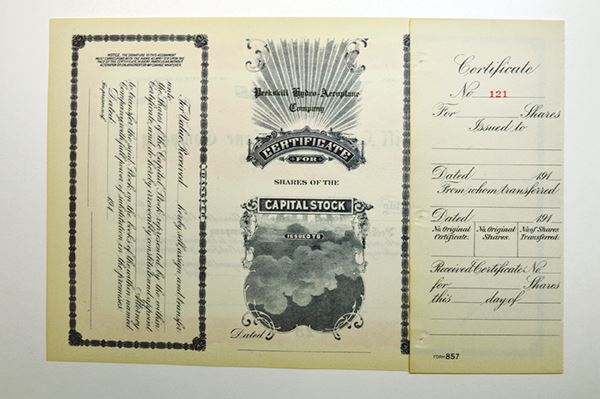 NOTICE. THE SIGNATURE TO THIS ASSIGNMENT
MUST CORRESPOND WITH THE NAME AS WRITTEN UPON THE
FACE OF THE CERTIFICATE IN EVERY PARTICULAR WITHOUT
ALTERATION OR ENLARGEMENT OR ANY CHANGE WHATEVER.
For Value Received hereby sell, assign and transfer
unto
Shares
of the Capital Stock represented by the within
Certificate, and do hereby irrevocably constitute and appoint
Attorney
to transfer the said Stock on the books of the within named
Company with full power of substitution in the premises.
Dated 191
In presence of
Peekskill Hydro-Aeroplane
Company
CERTIFICATE
FOR
SHARES OF THE
CAPITAL STOCK
ISSUED TO
Dated
Certificate
No. 121
For Shares
Issued to
Dated 191
From whom transferred
Dated 191
No. Original Certificate. No. Original Shares. No. of Shares Transferred.
Received Certificate No.
for Shares
this day of
FORM 857